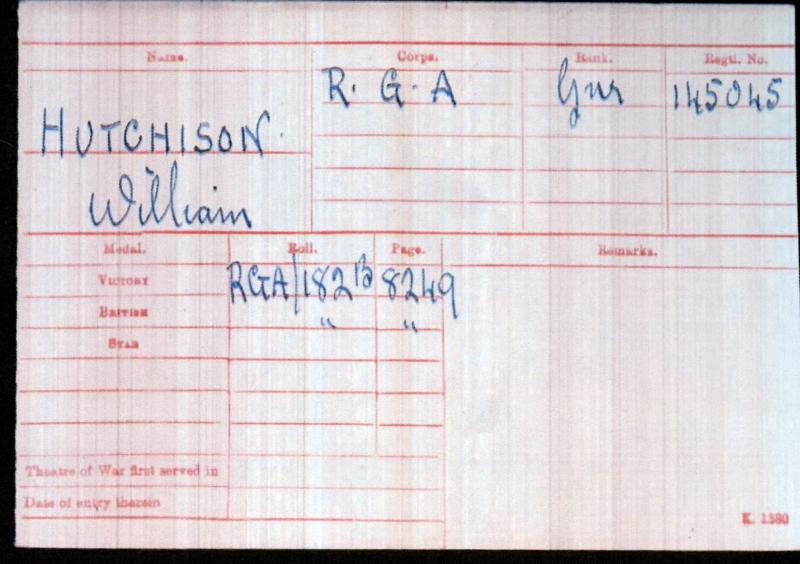 Name. Corps. Rank. Regtl. No.
R. G. A Gnr 145045
HUTCHISON.
William
Medal. Roll. Page. Remarks.
VICTORY RGA/182B 8249
BRITISH " "
STAR
Theatre of War first served in
Date of entry therein
K. 1380